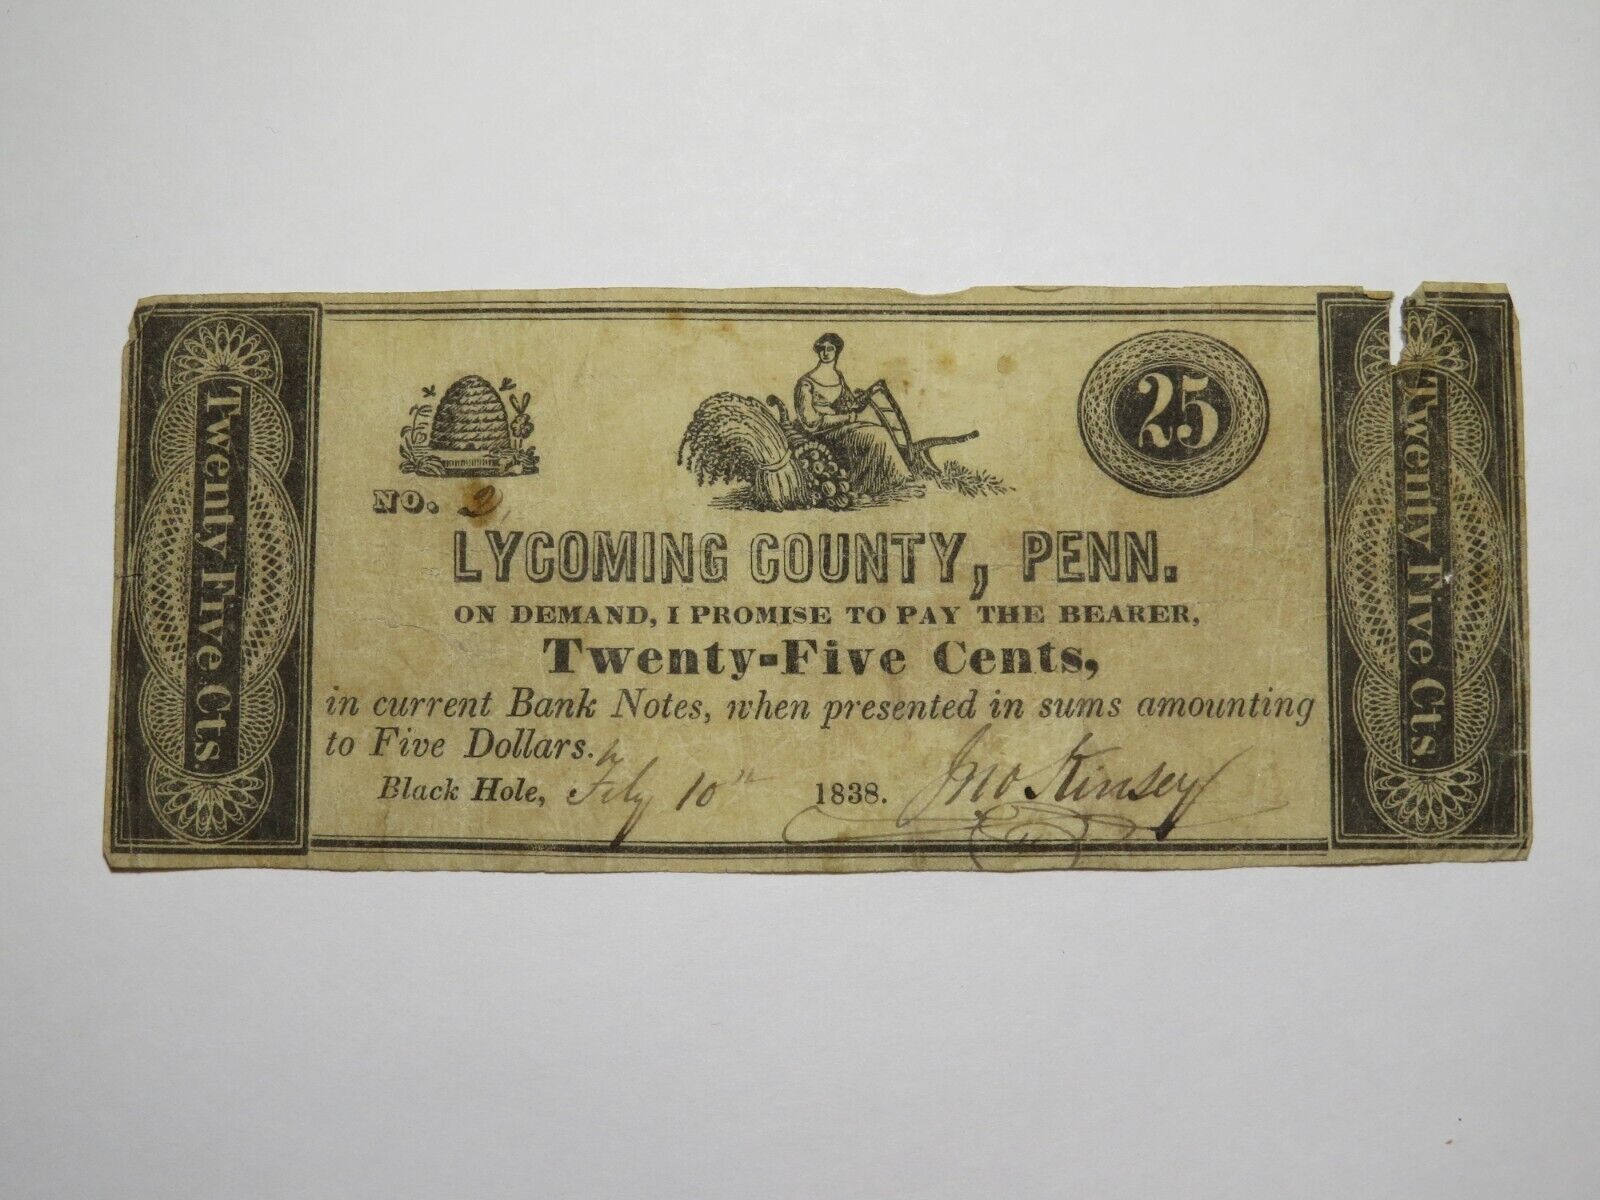 Twenty Five Cts.
25
NO. 2
LYCOMING COUNTY, PENN.
ON DEMAND, I PROMISE TO PAY THE BEARER,
Twenty-Five Cents,
in current Bank Notes, when presented in sums amounting
to Five Dollars.
Black Hole, Feby 10th 1838. Jno Kinsey
Twenty Five Cts.